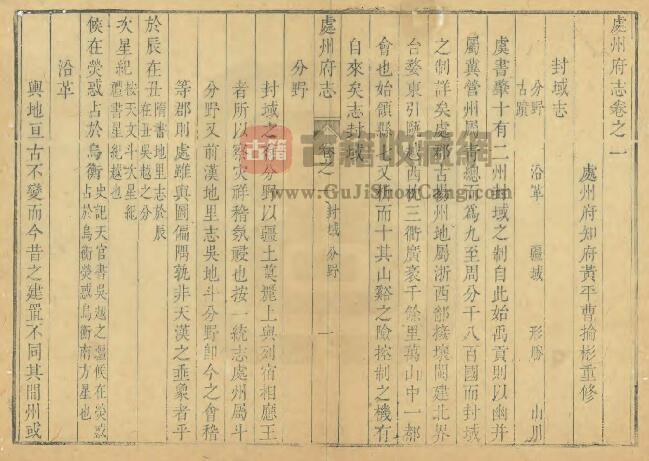 處州府志卷之一
處州府知府黃平曹掄彬重修
封域志
分野 沿革 疆域 形勝 山川
古蹟
虞書肇十有二州封域之制自此始禹貢則以幽并
屬冀營州屬青總而爲九至周分千八百國而封域
之制詳矣處郡古揚州地屬浙西鄙接壤閩建北界
台婺東引甌越西枕三衢廣袤千餘里萬山中一都
會也始領縣七又析而十其山谿之險控制之機有
自來矣志封域
處州府志 卷之一 封域 分野 一
分野
封域之有分野以疆土莫麗上與列宿相應王
者所以察灾祥稽氛祲也按一統志處州屬斗
分野又前漢地里志吳地斗分野卽今之會稽
等郡則處雖輿圖偏隅孰非天漢之垂象者乎
於辰在丑 隋書地里志於辰在丑吳越之分
次星紀 按天文斗次星紀禮書星紀越也
候在熒惑占於鳥衡 史記天官書吳越之疆候在熒惑占於鳥衡熒惑鳥衡南方星也
沿革
輿地亘古不變而今昔之建置不同其間州或
古籍
古籍收藏網
www.GuJiShouCang.com